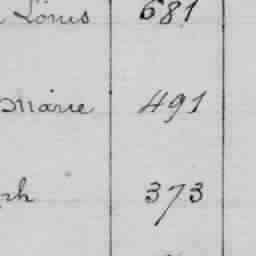 Louis 681
Marie 491
ph 373